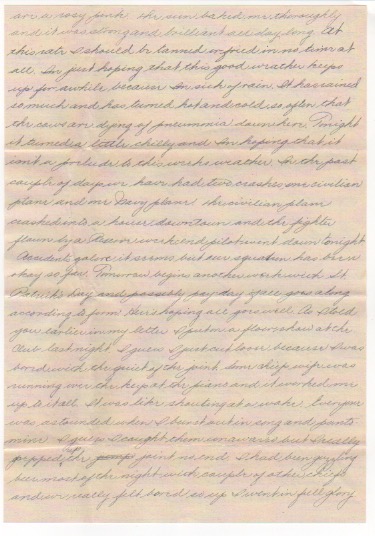 are a rosy pink. The sun baked me thoroughly
and it was strong and brilliant all day long. At
this rate I should be tanned or fried in no time at
all. Im just hoping that this good weather keeps
up for awhile because Im sick of rain. It has rained
so much and has turned hot and cold so often that
the cows are dying of pneumonia down here. Tonight
it turned a little chilly and Im hoping that it
isnt a prelude to this weeks weather. In the past
couple of days we have had two crashes one civilian
plane and one Navy plane. The civilian plane
crashed into a house downtown and the fighter
flown by a Reserve weekend pilot went down tonight
Accidents galore it seems but our squadron has been
okay so far. Tomorrow begins another week with St.
Patricks Day and possibly pay day goes along
according to form. Heres hoping all goes well. As I told
you earlier in my letter I put on a floor show at the
Club last night. I guess I just cut loose because I was
bored with the quiet of the joint. Some wife was
running over the keys at the piano and it worked me
up to it all. It was like shouting at a wake. Everyone
was astounded when I burst out in song and pants
mine. I guess I caught them unawares but I really
pepped the joint no end. I had been guzzling
beer most of the night with couple of other chips
and we really felt bored so up I went in full glory